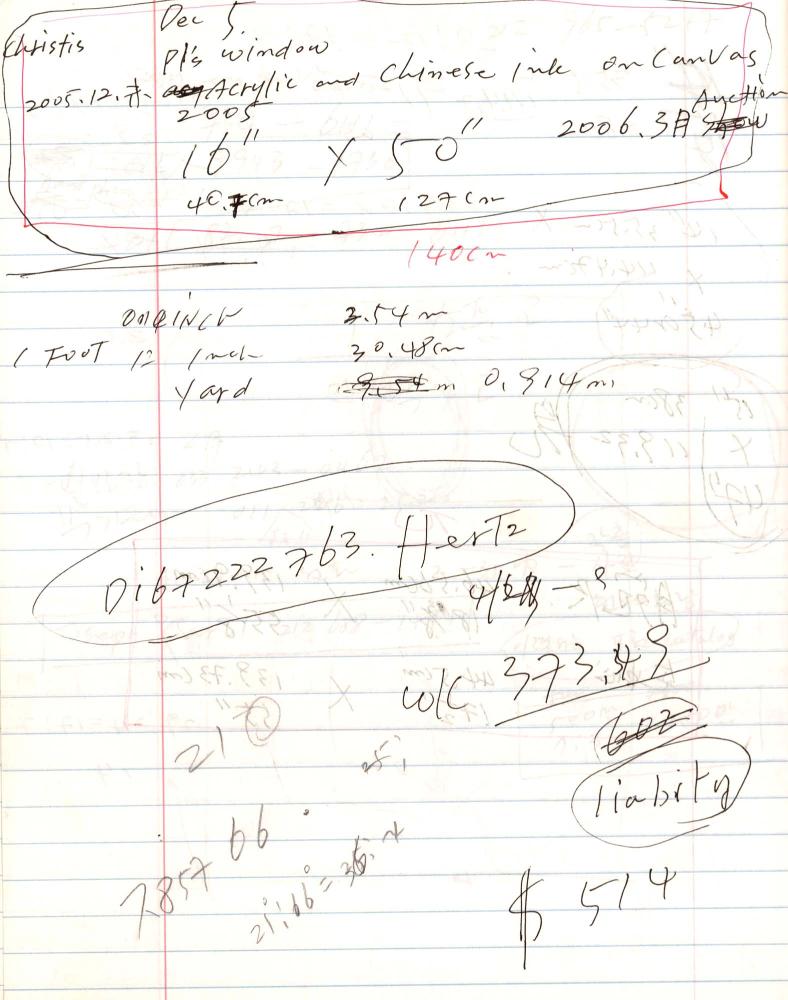 Dec 5.
Christis
Pl's window
2005.12. Acrylic and Chinese ink on Canvas
2005
Auction
2006.3月
16" X 50"
40.7cm 127cm
140cm
one inch 2.54 m
1 FOOT 12 inch 30.48cm
Yard m 0.914m
Di67222763. Hertz
w/c 373.49
602
liabrity
21
7857 66
21.66 = 36.7
$ 514